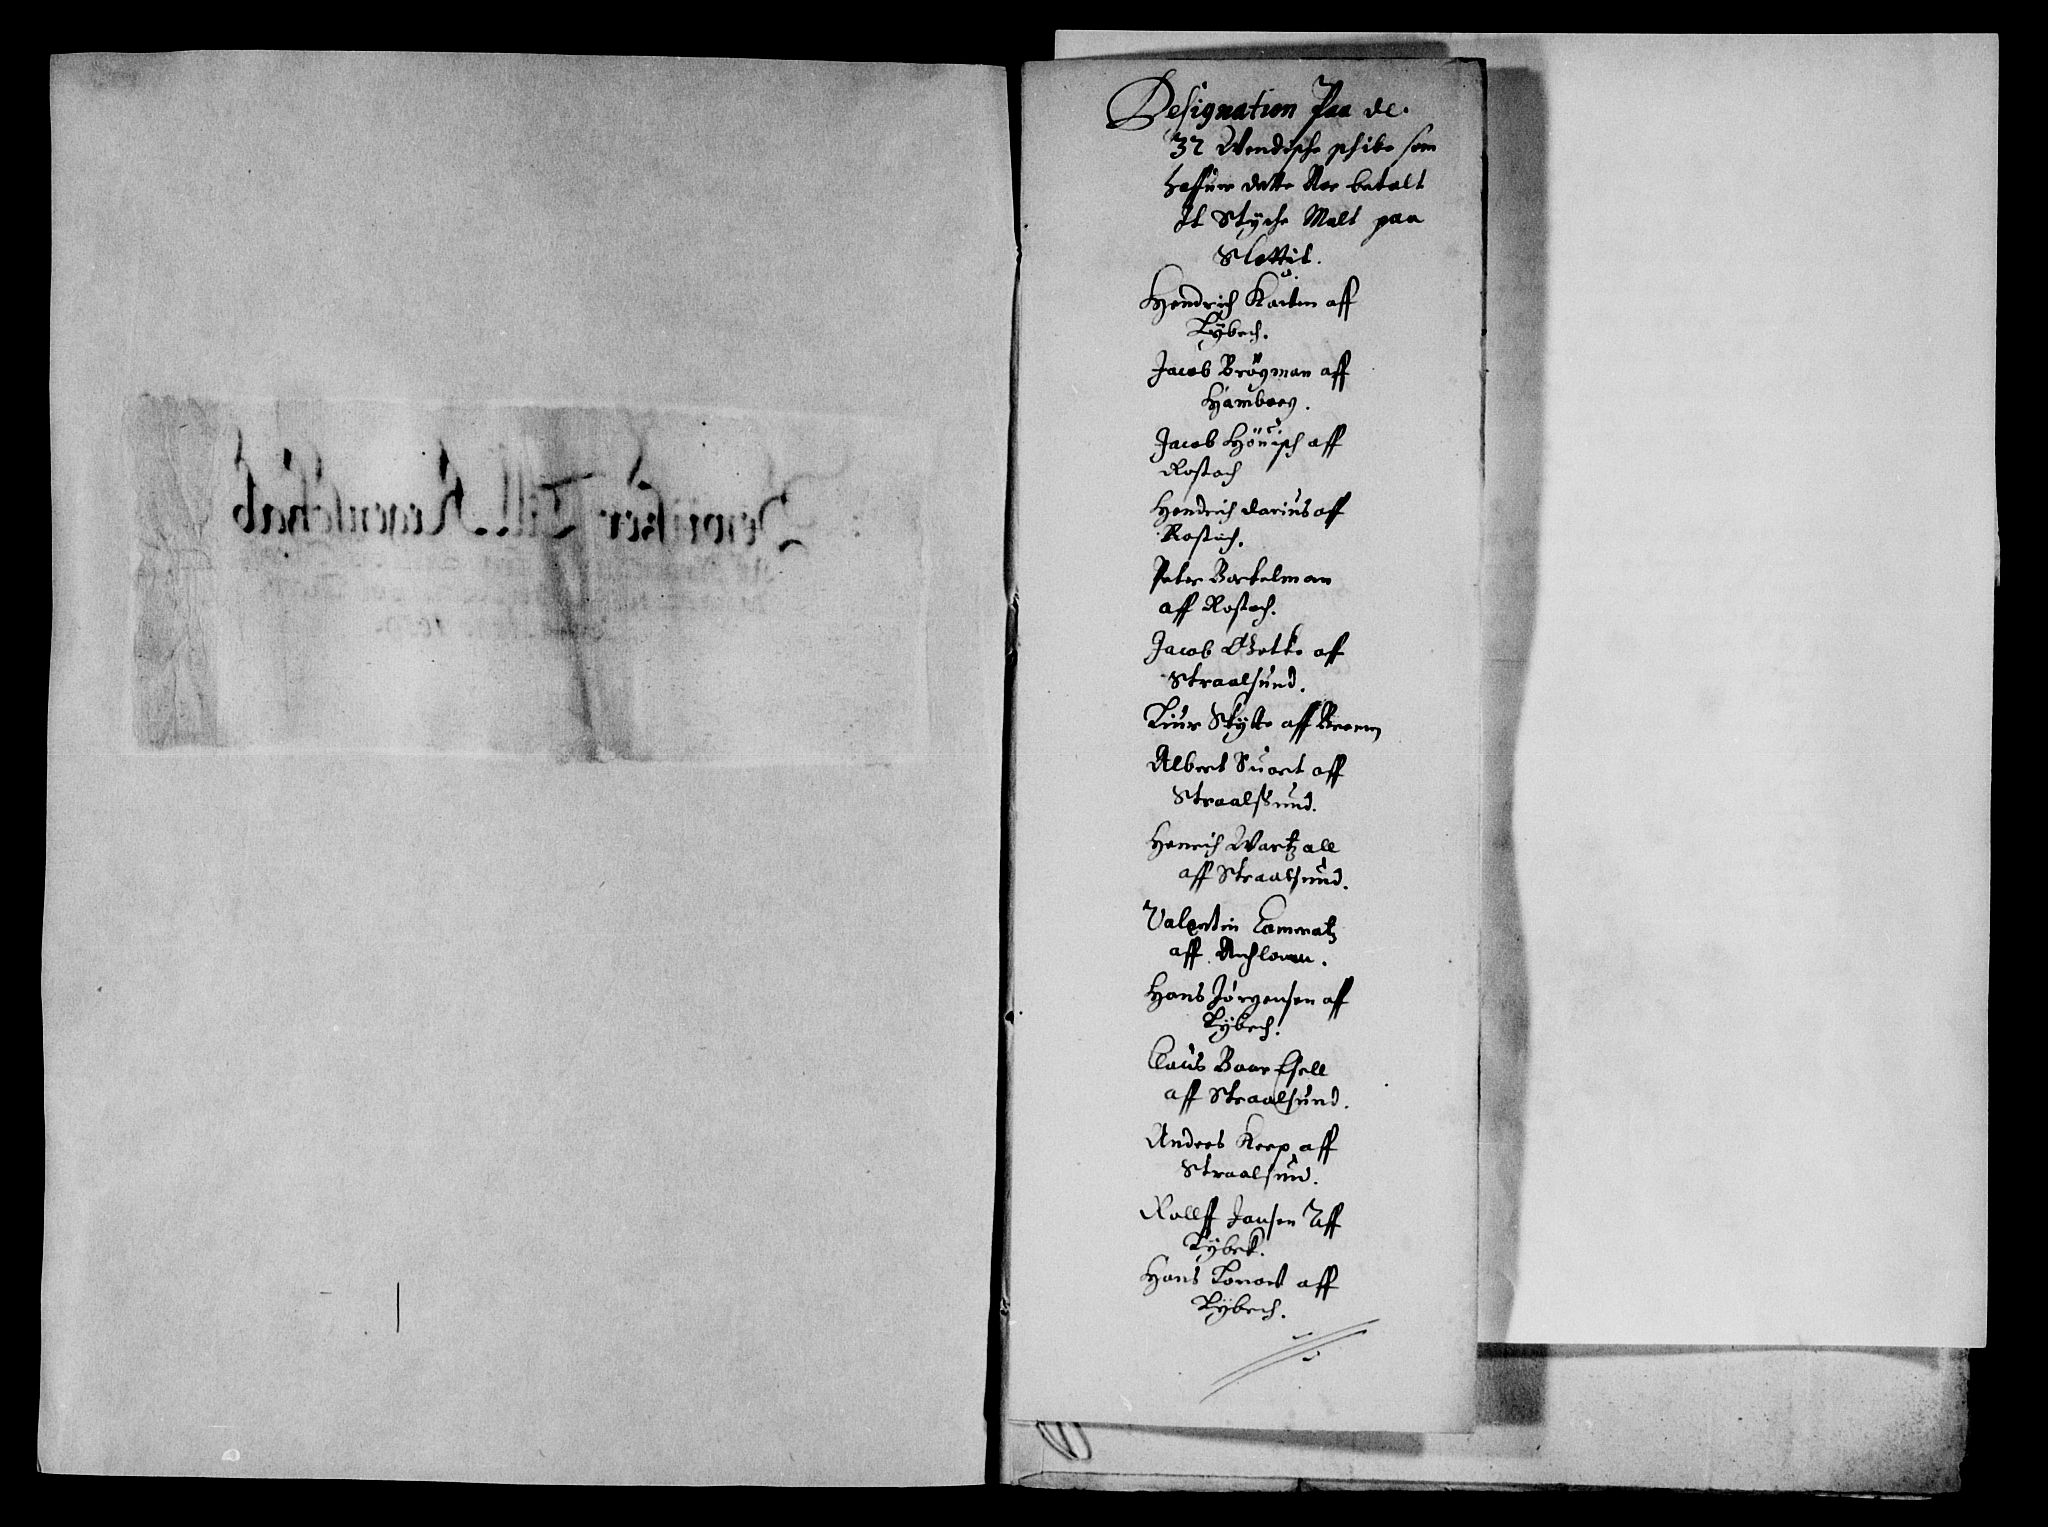 Designation Paa de.
32 Wendische skibe som
haffuer dette Aar betalt
It Stycke Malt paa
Slottit.
Hendrich Karten aff
Lybech.
Jacob Bröyman aff
Hamborg.
Jacob Hönisch aff
Rostoch
Hendrich Darius aff
Rostoch.
Peter Bartelman
aff Rostoch.
Jacob Getke aff
Straalsund.
Skytte aff Bremen
Albert Suart aff
Straalssund.
Henrich Wartzall
aff Straalsund.
Valentin Cameratz
aff
Hans Jørgensen aff
Lybech.
Claus Baar
aff Straalsund.
Anders Keep aff
Straalsund.
Rollff Jansen Aff
Lybek.
Hans aff
Lybech.
Beuiser Till Regenschab